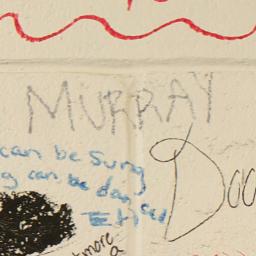 MURRAY
can be sung
g can be danced
Doo
more
a